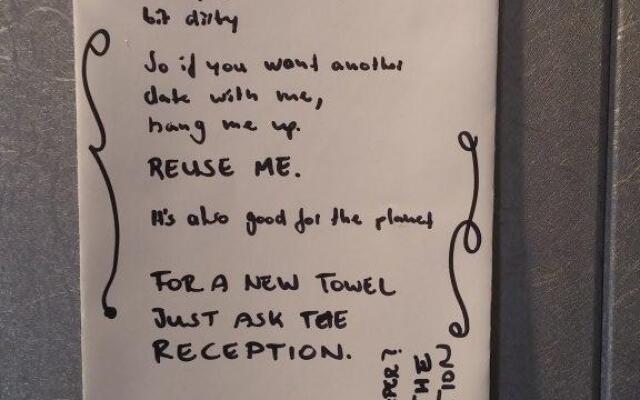 bit dirty
So if you want another
date with me,
hang me up.
REUSE ME.
It's also good for the planet
FOR A NEW TOWEL
JUST ASK THE
RECEPTION.